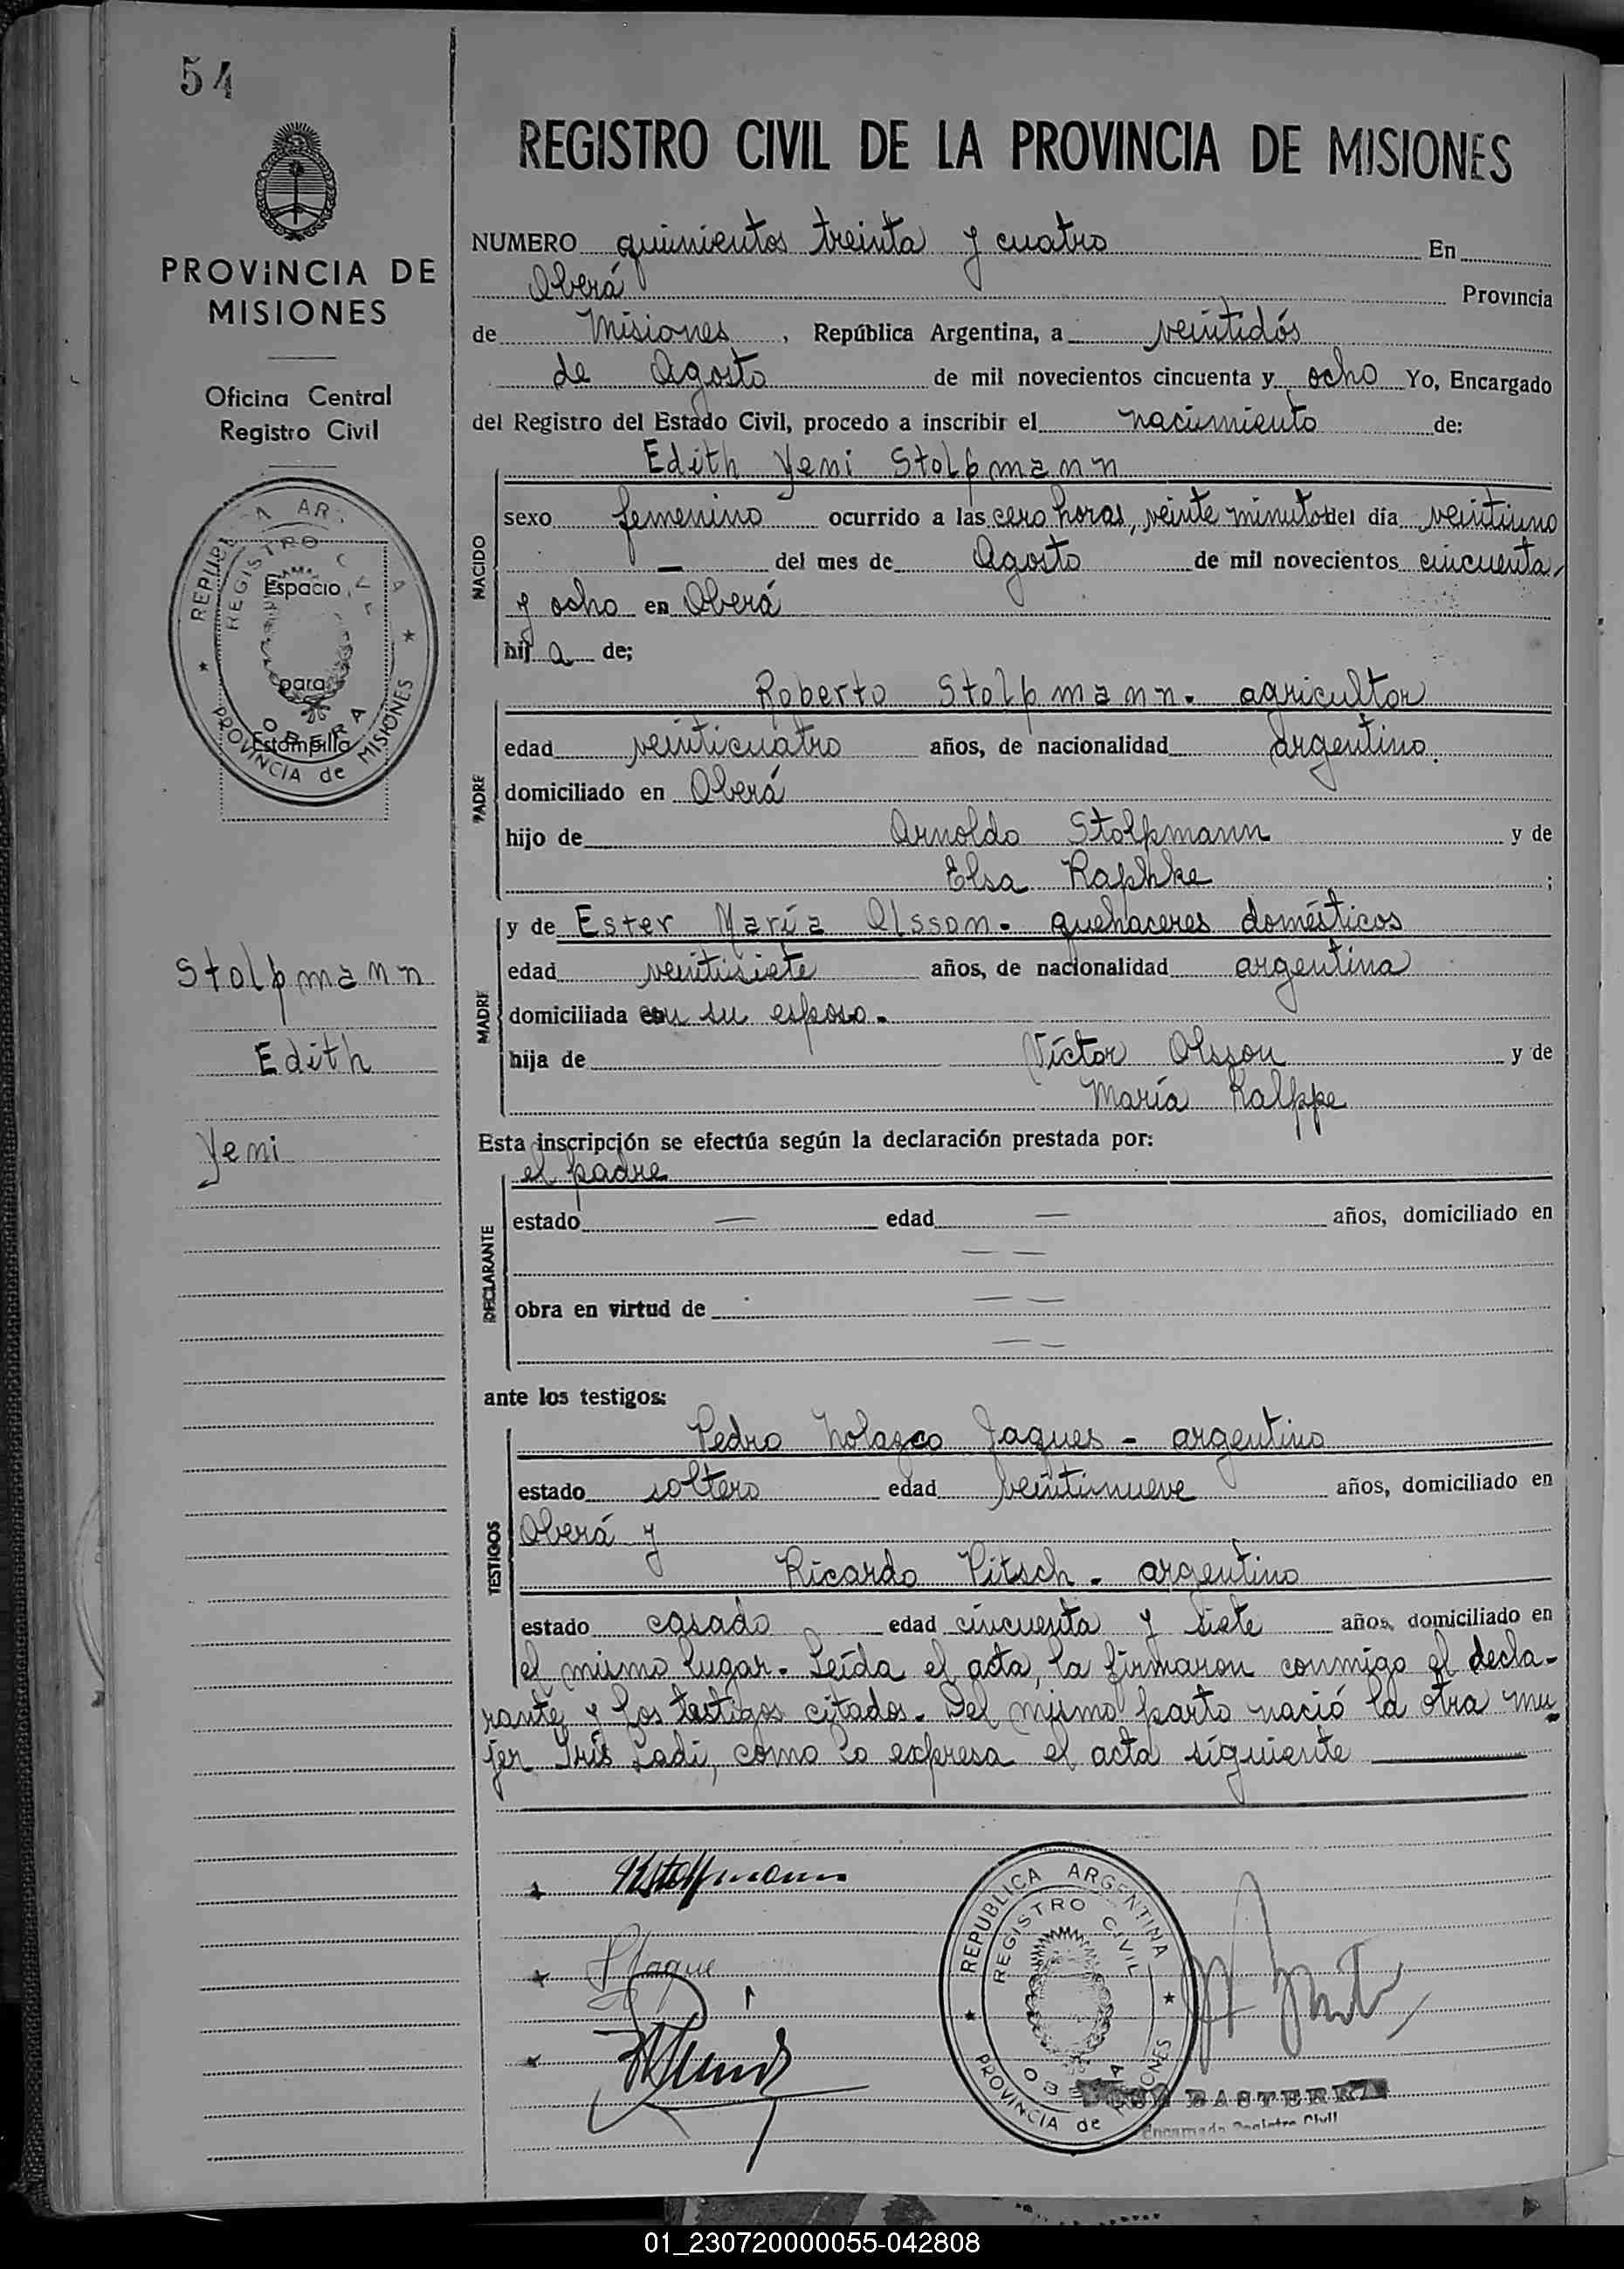 54
PROVINCIA DE
MISIONES
Oficina Central
Registro Civil
REPUBLICA AR
REGISTRO CIVIL
Espacio
para
Estampilla
OBERA
PROVINCIA de MISIONES
Stolpmann
Edith
Yeni
REGISTRO CIVIL DE LA PROVINCIA DE MISIONES
NUMERO quinientos treinta y cuatro En
Oberá Provincia
de Misiones, República Argentina, a veintidós
de Agosto de mil novecientos cincuenta y ocho Yo, Encargado
del Registro del Estado Civil, procedo a inscribir el nacimiento de:
Edith Yeni Stolpmann
NACIDO
sexo femenino ocurrido a las cero horas, veinte minutos del día veintiuno
— del mes de Agosto de mil novecientos cincuenta
y ocho en Oberá
hij a de;
PADRE
Roberto Stolpmann. agricultor
edad veinticuatro años, de nacionalidad argentino.
domiciliado en Oberá
hijo de Arnoldo Stolpmann y de
Elsa Raphke ;
MADRE
y de Ester María Olsson. quehaceres domésticos
edad veintisiete años, de nacionalidad argentina
domiciliada con su esposo.
hija de Víctor Olsson y de
María Kalppe
Esta inscripción se efectúa según la declaración prestada por:
el padre
DECLARANTE
estado — edad — años, domiciliado en
— —
obra en virtud de — —
— —
ante los testigos:
TESTIGOS
Pedro Nolazco Jaques - argentino
estado soltero edad veintinueve años, domiciliado en
Oberá y
Ricardo Pitsch. argentino
estado casado edad cincuenta y siete años, domiciliado en
el mismo lugar. Leída el acta, la firmaron conmigo el decla-
rante y los testigos citados. Del mismo parto nació la otra mu-
jer Iris Ladi, como lo expresa el acta siguiente
RStolpmann
PJaque
REPUBLICA ARGENTINA
REGISTRO CIVIL
OBERA
PROVINCIA de MISIONES
BASTERRA
Encargado Registro Civil
01_230720000055-042808